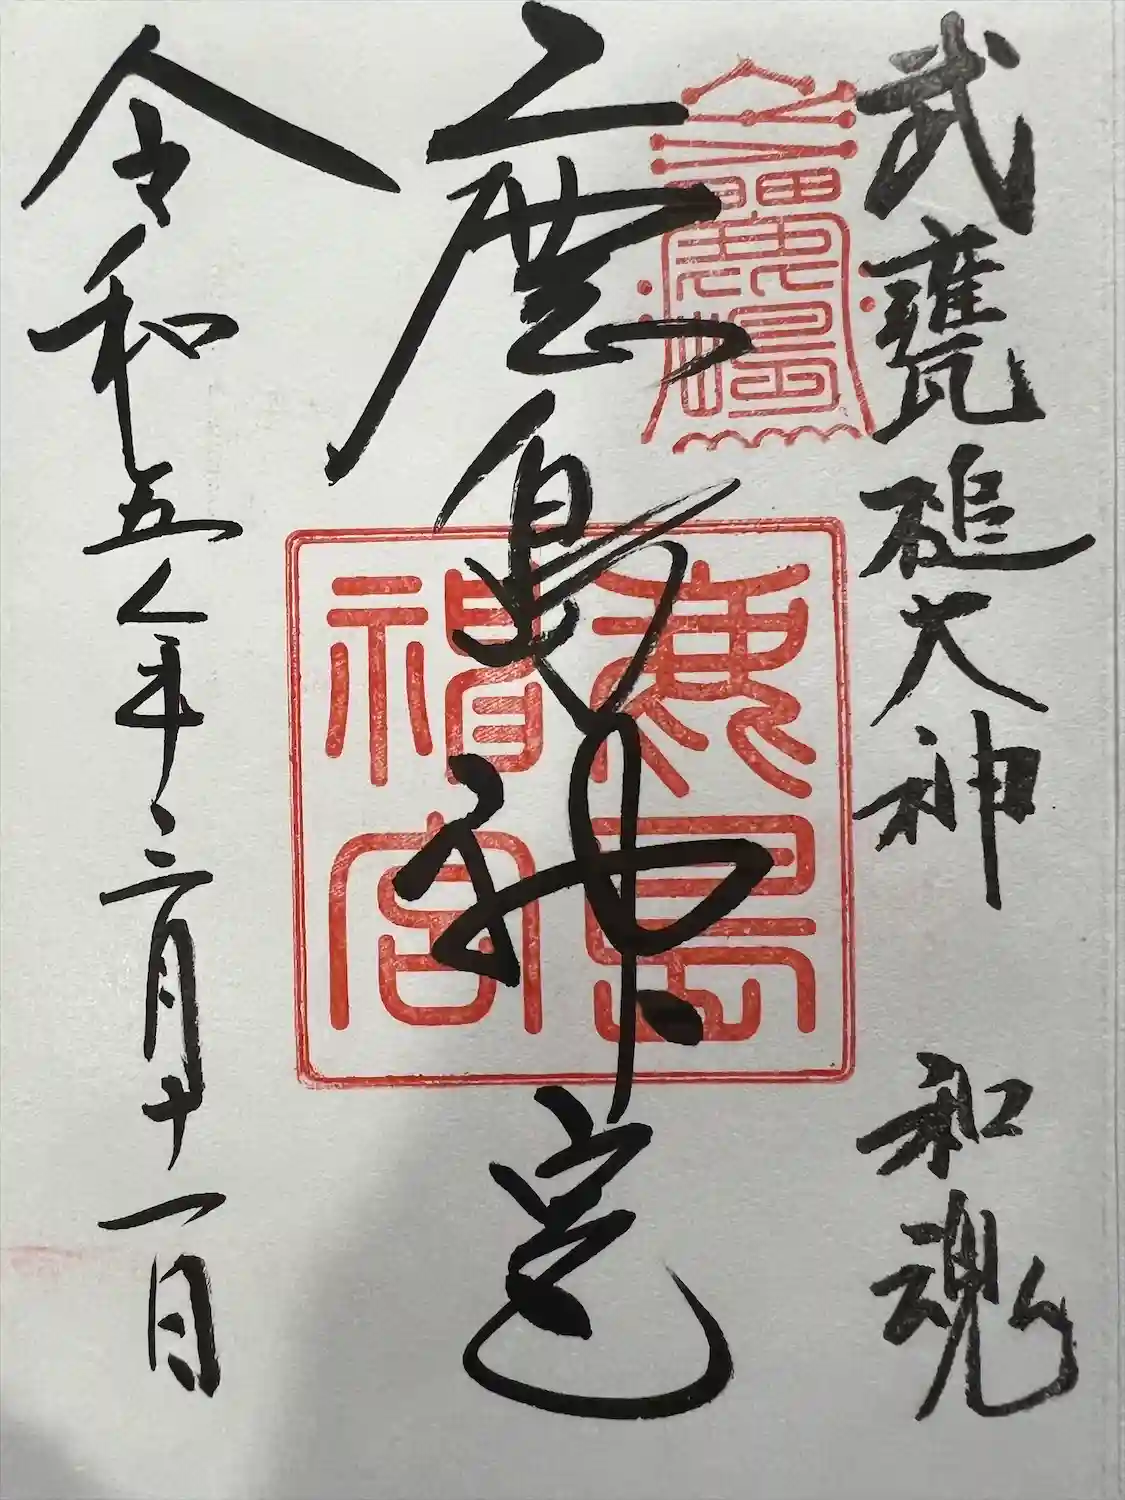 武甕槌大神 和魂
鹿島神宮
鹿島
神宮
令和五年三月十一日